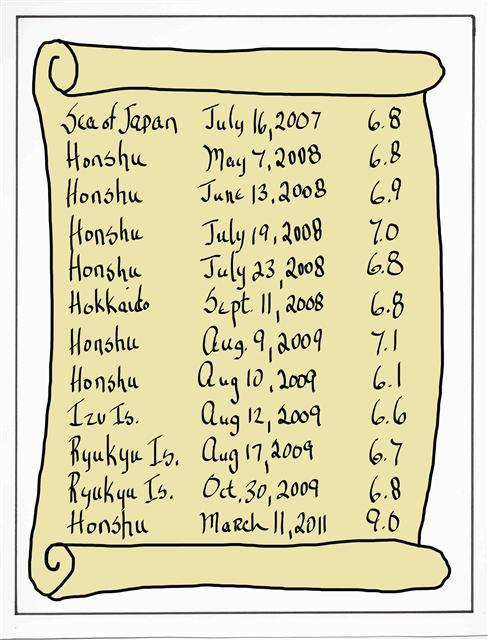 Sea of Japan July 16, 2007 6.8
Honshu May 7, 2008 6.8
Honshu June 13, 2008 6.9
Honshu July 19, 2008 7.0
Honshu July 23, 2008 6.8
Hokkaido Sept. 11, 2008 6.8
Honshu Aug. 9, 2009 7.1
Honshu Aug 10, 2009 6.1
Izu Is. Aug 12, 2009 6.6
Ryukyu Is. Aug 17, 2009 6.7
Ryukyu Is. Oct. 30, 2009 6.8
Honshu March 11, 2011 9.0